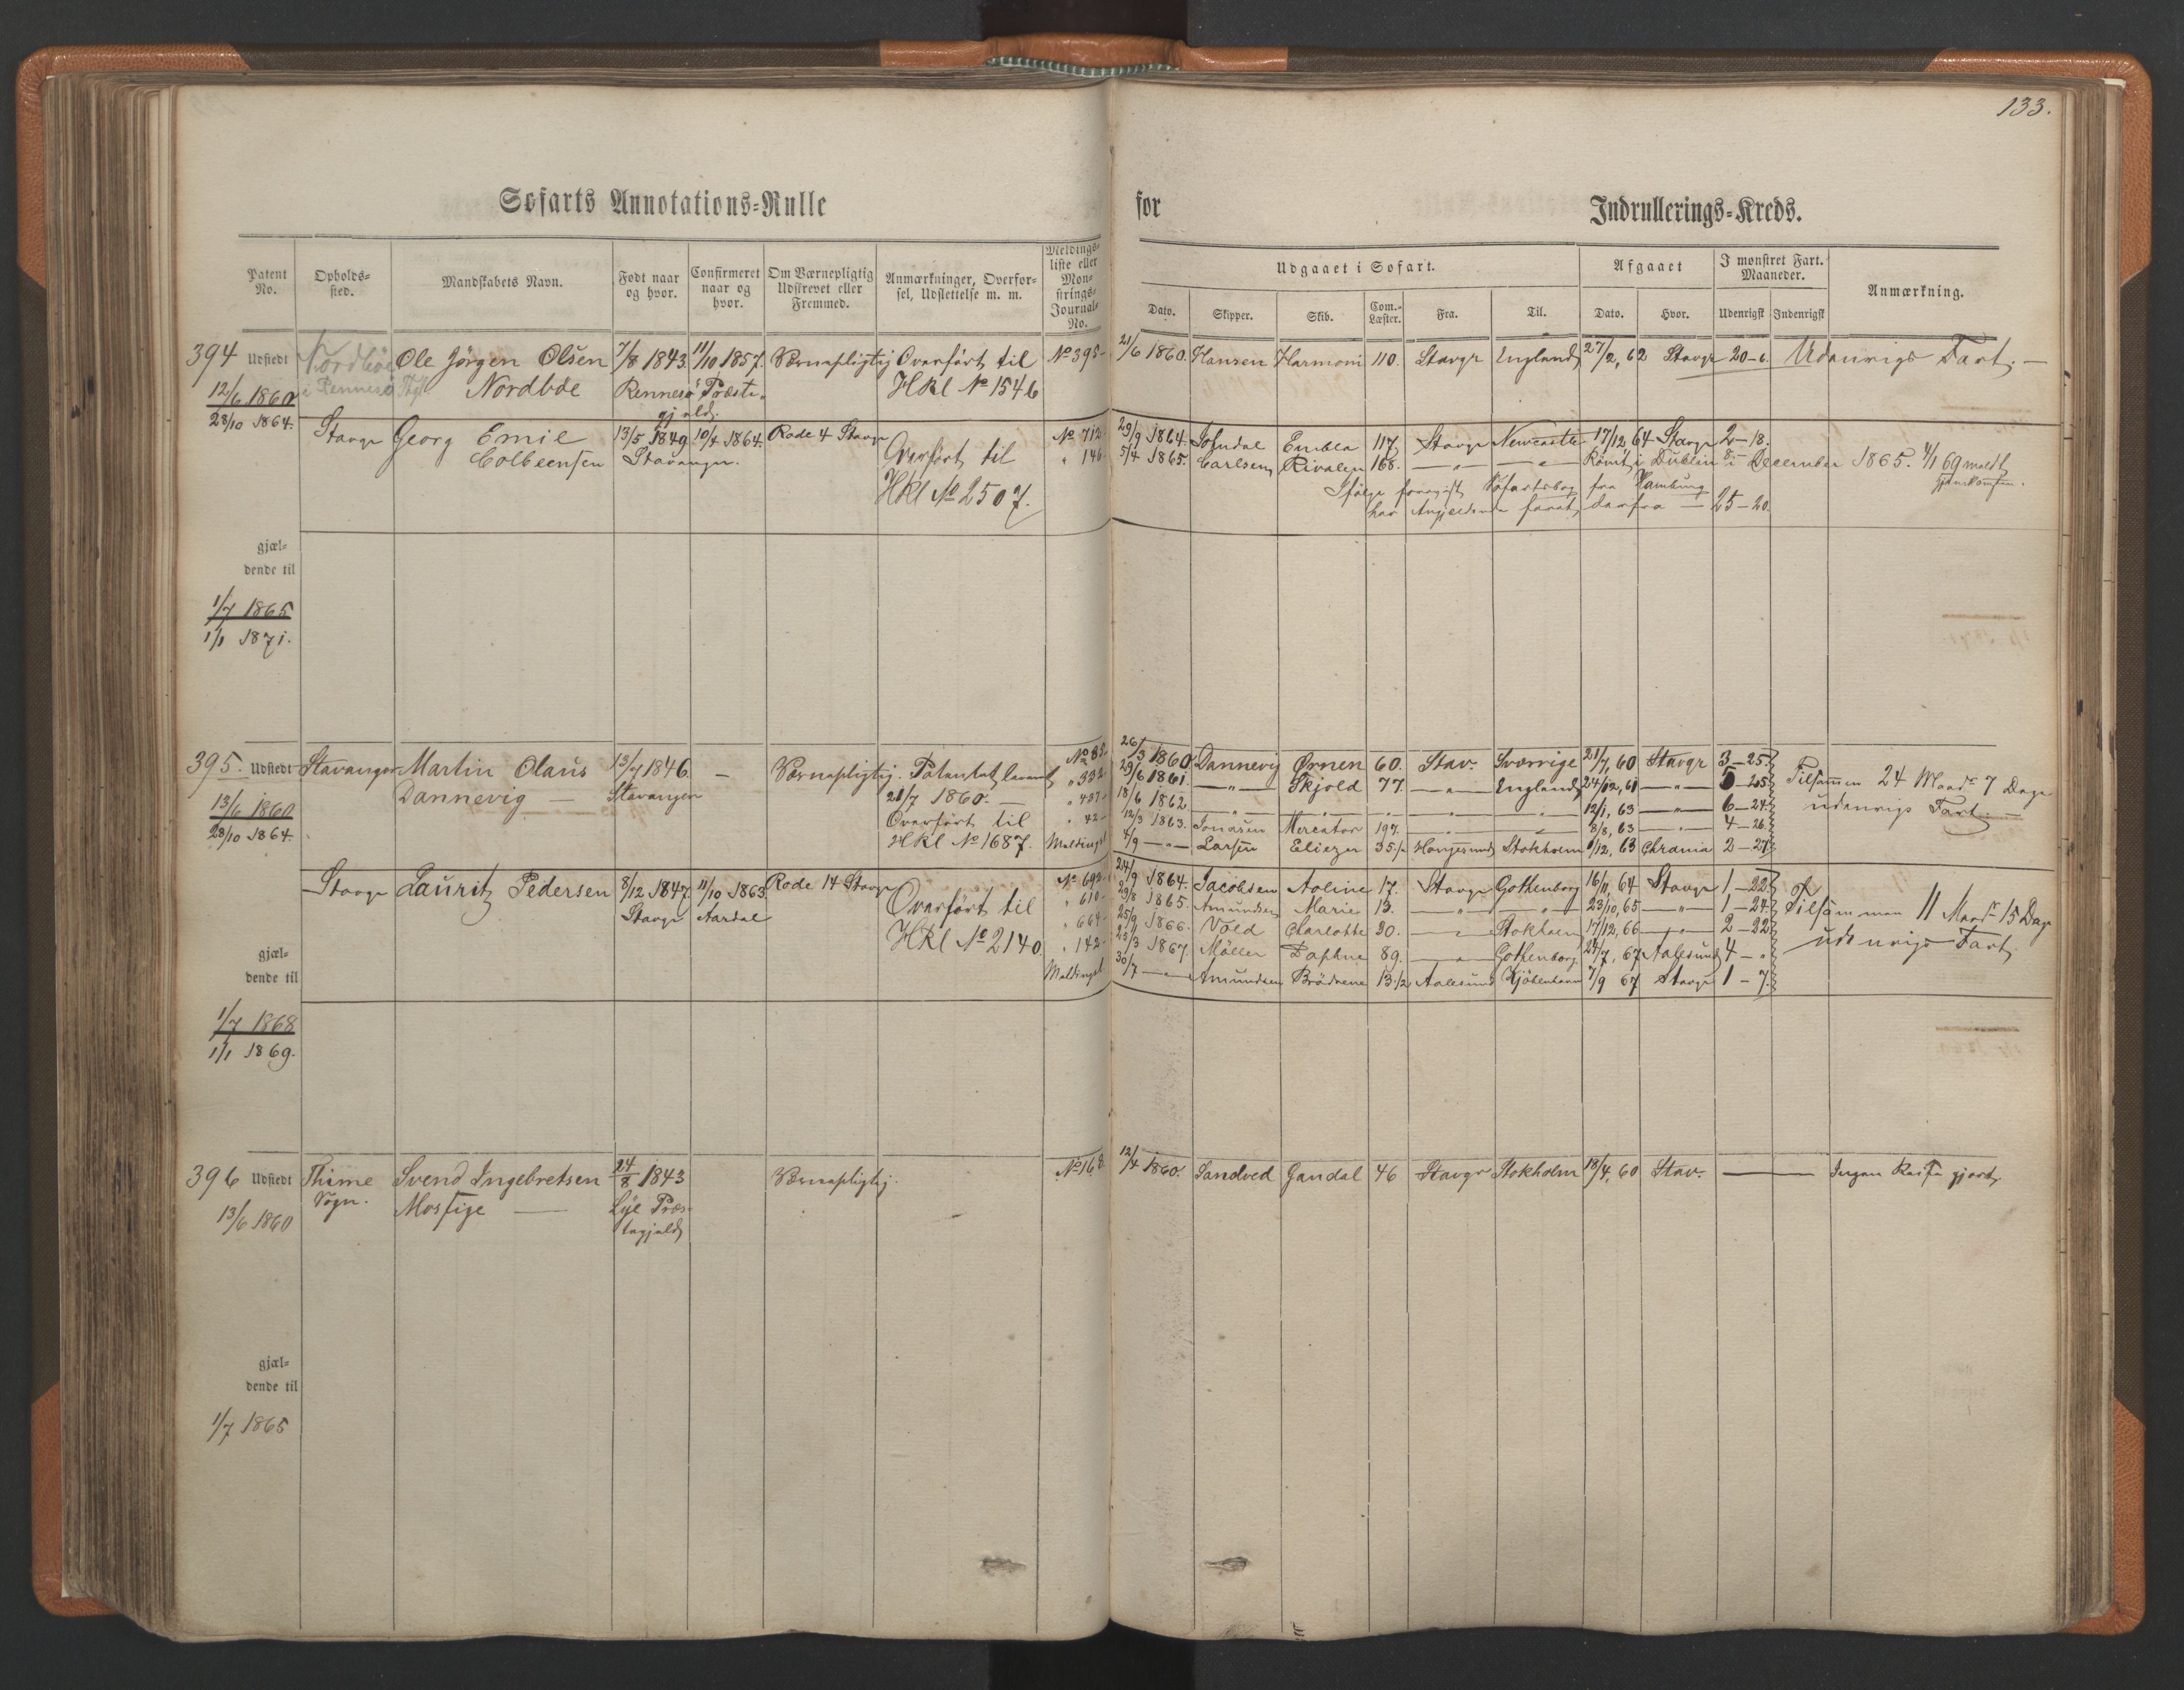 133.
Søfarts Annotations-Rulle for Indrullerings-Kreds.
Patent No.
Opholds-sted.
Mandskabets Navn.
Født naar og hvor.
Confirmeret naar og hvor.
Om Værnepligtig Udskrevet eller Fremmed.
Anmærkninger, Overførsel, Udslettelse m. m.
Meldingsliste eller Mønstrings-Journal-No.
Udgaaet i Søfart.
Dato. Skipper. Skib. Com.-Læster. Fra. Til.
Afgaaet
Dato. Hvor.
I mønstret Fart. Maaneder.
Udenrigsk Indenrigsk
Anmærkning.
394 Udstedt Nordböe Ole Jörgen Olsen 7/8 1843. 11/10 1857. Værnepligtig Overfört til No 395- 21/6 1860. Hansen Harmoni 110. Stavgr England 27/2, 62 Stavgr 20-6. Udenrigs Fart. —
12/6 1860 i Rennesö Nordböe Rennesö Præste- HKl No 1546
gjæld.
28/10 1864. Stavgr Georg Emil 13/5 1849 10/4 1864. Rode 4 Stavgr Overfört til No 712- 29/9 1864. Embla 117. Stavgr Newcastle 17/12 64 Stavgr 2-18.
Colbeensen Stavanger. HKl No 2507. " 146- 5/4 1865. Carlsen Rivalen 168. —"— —"— Römt i Dublin i December 1865. 4/1 69 meldt Hjemkomsten.
Ifölge foreviist Söfartsbog fra Hamburg
har Angjeldende faret derfra — 25-20.
gjæl-
dende til
1/7 1865
1/1 1871.
395. Udstedt Stavanger Martin Olaus 13/7 1846. — Værnepligtig. Patentet leveret No 85. 26/3 1860 Dannevig Ørnen 60. Stav. Sverrige 21/7, 60 Stavgr 3-25.
13/6 1860 Dannevig — Stavanger 21/7 1860. — " 332 29/6 1861. —"— Skjold 77. —"— England 24/12, 61 —"— 5-25 Tilsammen 24 Maadr 7 Dage
Overfört til " 427- 18/6 1862. —"— —"— —"— —"— —"— 12/1, 63 —"— 6-24. udenrigs Fart. —
28/10 1864. HKl No 1687. " 42- 12/3 1863. Jonasen Mercator 197. —"— —"— 8/8, 63 —"— 4-26.
Meldingsl 4/9 —"— Larsen Eliezer 35 1/2 Haugesund Stokholm 1/12, 63 Chrania 2-27.
Stavgr Lauritz Pedersen 8/12 1847. 11/10 1863. Rode 14 Stavgr Overfört til No 692- 24/9 1864. Jacobsen Aoline 17. Stavgr Gothenborg 16/11, 64 Stavgr 1-22.
Stavgr Aardal HKl No 2140. " 610- 29/8 1865. Amundsen Marie 13. —"— —"— 23/10, 65 —"— 1-24. Tilsammen 11 Maadr 15 Dage
" 664- 25/9 1866. Vold Charlotte 30. —"— Stokholm 17/12, 66 —"— 2-22. udenrigs Fart.
" 142- 25/3 1867. Möller Daphne 89. —"— Gothenborg 24/7, 67 Aalesund 4-"
Meldingsl 30/7 —"— Amundsen Brödrene 13 1/2 Aalesund Kjöbenhavn 7/9 67 Stavgr 1-7.
gjæl-
dende til
1/7 1868
1/1 1869.
396 Udstedt Thime Svend Ingebretsen 24/8 1843 Værnepligtig. No 168 12/4 1860. Sandved Gandal 46 Stavgr Stokholm 18/4, 60 Stav. — Ingen Reise gjort.
13/6 1860 Sogn. Mossige — Lye Præs-
tegjeld
gjæl-
dende til
1/7 1865